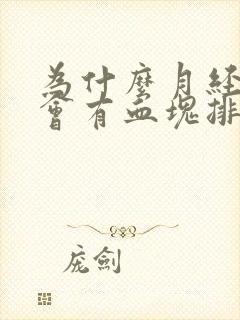 為什麼月経
會有血塊排
庞劍